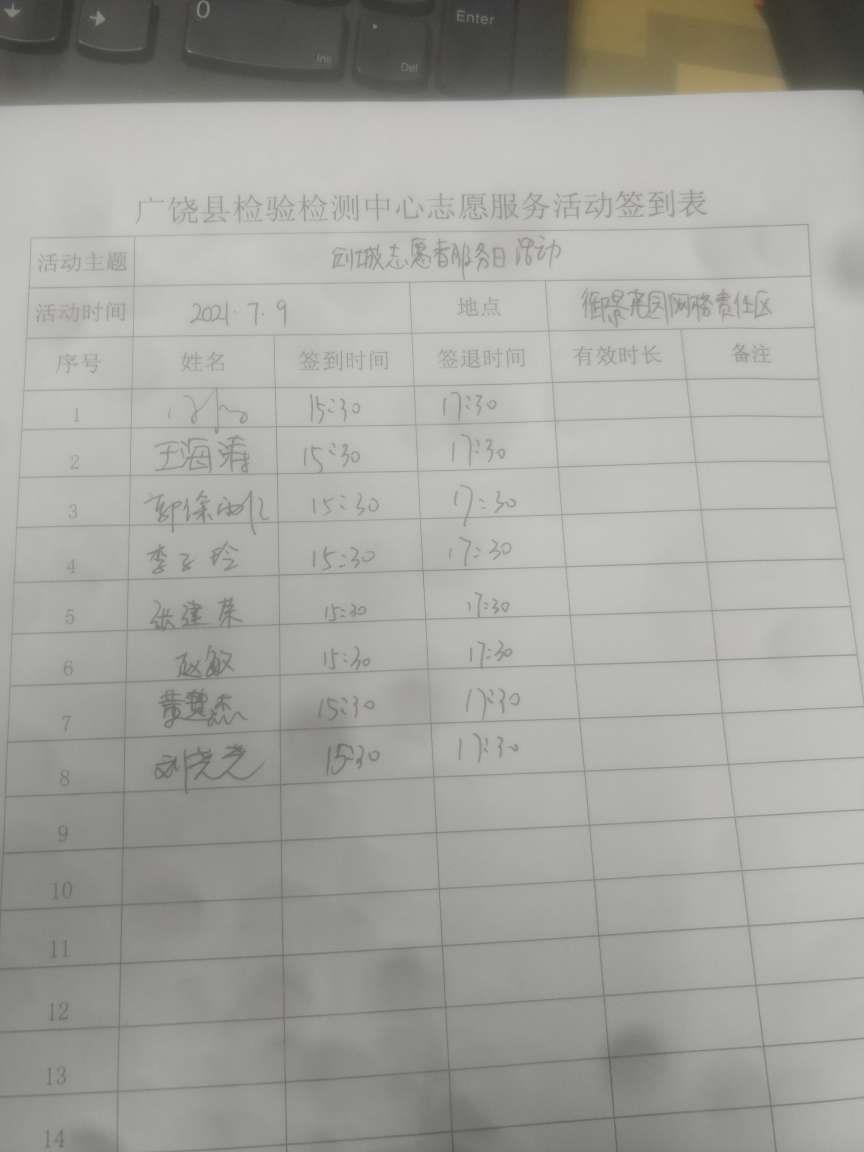 0
Ins
Del
Enter
广饶县检验检测中心志愿服务活动签到表
活动主题 创城志愿者服务日活动
活动时间 2021.7.9 地点 御景花园网格责任区
序号 姓名 签到时间 签退时间 有效时长 备注
1 15:30 17:30
2 王海涛 15:30 17:30
3 15:30 17:30
4 李玉玲 15:30 17:30
5 张建荣 15:30 17:30
6 赵敏 15:30 17:30
7 15:30 17:30
8 15:30 17:30
9
10
11
12
13
14